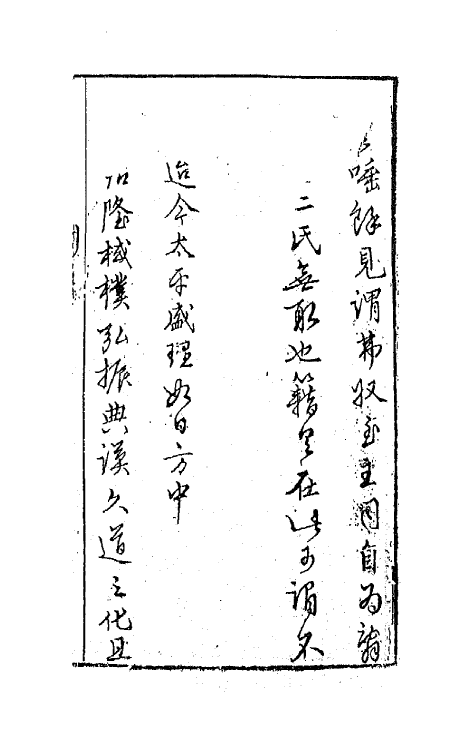 唾餘見謂弗收至主同自為
二氏無取也籍具在此可謂不
迨今太平盛理如日方中
加隆棫樸弘振典謨久道之化且